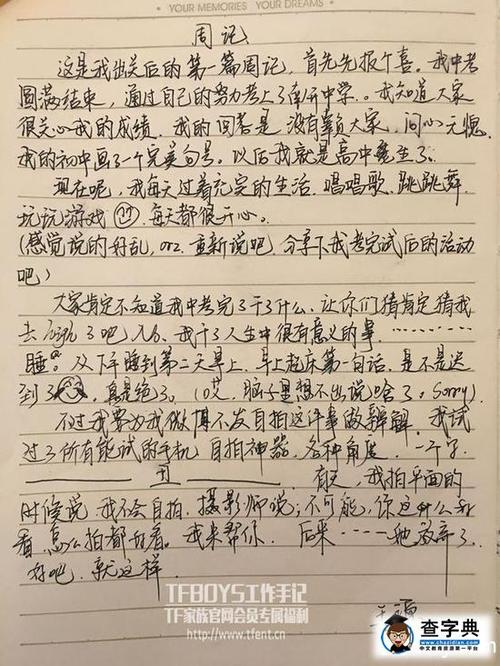 YOUR MEMORIES YOUR DREAMS
周记
这是我出关后的第一篇周记,首先先报个喜。我中考
圆满结束,通过自己的努力考上了南开中学。我知道大家
很关心我的成绩,我的回答是没有辜负大家,问心无愧
我的初中画了一个完美句号。以后我就是高中生了。
现在呢,我每天过着充实的生活.唱唱歌.跳跳舞
玩玩游戏 每天都很开心。
(感觉说的好乱,orz.重新说吧.分享下我考完试后的活动
吧)
大家肯定不知道我中考完了干了什么.让你们猜肯定猜我
去 了吧 我干了人生中很有意义的事
睡。从下午睡到第二天早上.早上起床第一句话.是不是迟
到了 真是绝了。 脑子里想不出说啥了。Sorry)
不过我要为我微博不发自拍这件事做辩解.我试
过了所有能试的手机.自拍神器.各种角度.一个字
丑 有天,我拍平面的
时候说.我不会自拍.摄影师说;不可能,你这 么
看.怎么拍都好看。我来帮你.后来……她放弃了.
好吧.就这样.
TFBOYS工作手记
TF家族官网会员专属福利
http://www.tfent.cn
王源
查字典
www.chazidian.com
中文教育资源第一平台